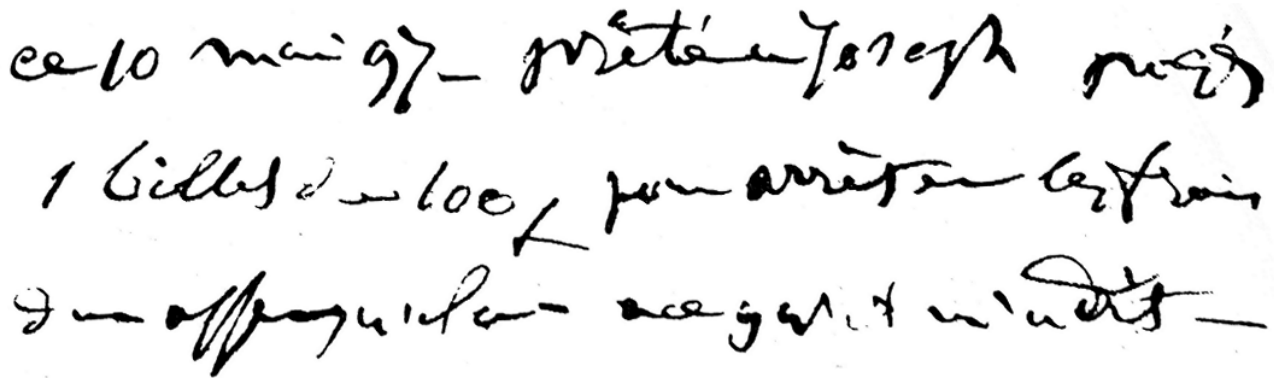 ce 10 mai 97_ prêté a Joseph
1 billet de 100 f pour arrêter les frais
d'une affaire qu'il a – a ce qu'il m'a dit –